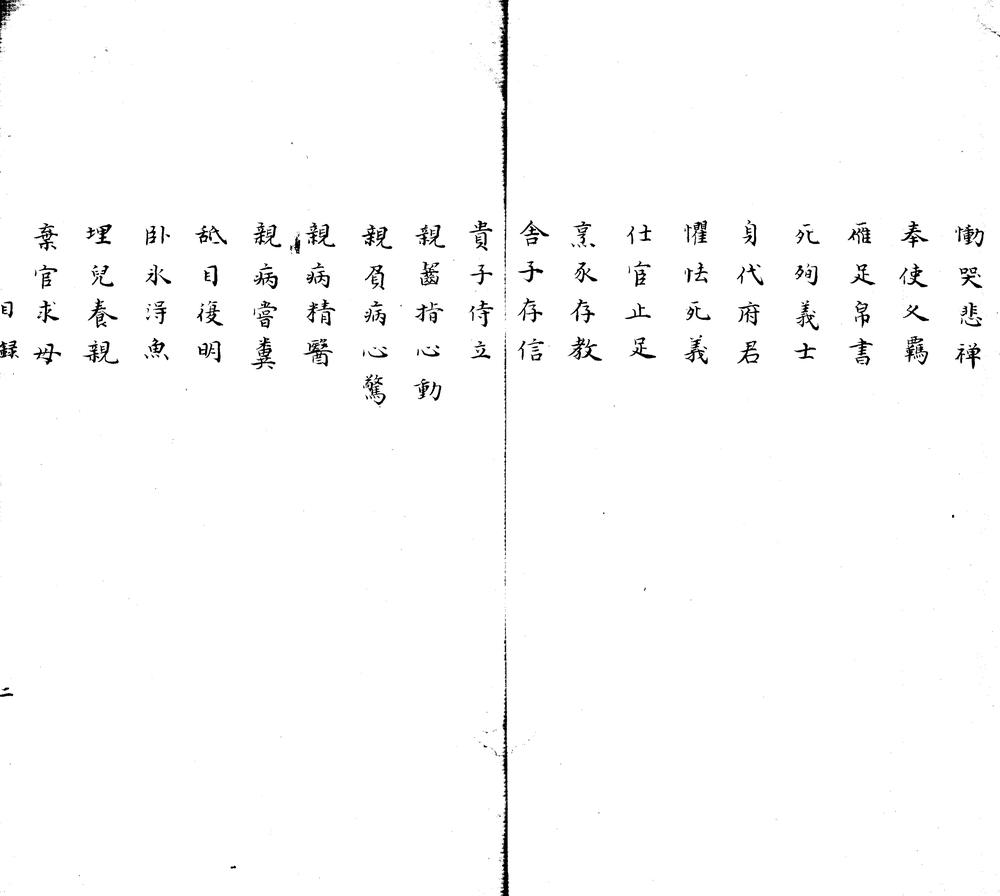 慟哭悲禅
奉使久羈
雁足帛書
死殉義士
身代府君
懼怯死義
仕官止足
烹豕存教
舎子存信
貴子侍立
親齧指心動
親負病心驚
親病精醫
親病嘗糞
舐目復明
卧氷得魚
埋兒養親
棄官求母
目錄
二